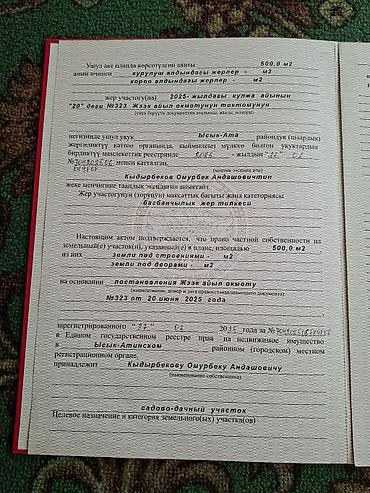 Ушул акт планда көрсөтүлгөн аянты 500,0 м2
анын ичинен курулуш алдындагы жерлер - м2
короо алдындагы жерлер - м2
жер участогу(на) 2025- жылдагы кулжа айынын
"20" деги №323 Жээк айыл окмотунун токтомунун
(укук берүүчү документтин аталышы, жылы, номери)
негизинде ушул укук Ысык-Ата райондук (шаардык)
жергиликтүү каттоо органында, кыймылсыз мүлккө болгон укуктардын
бирдиктүү мамлекеттик реестринде - жылдын
№ менен катталган,
Кыдырбеков Омурбек Андашовичтин
жеке менчигине таандык экендигин аныктайт.
Жер участогунун (зорунун) максаттык багыты жана категориясы
багбанчылык жер тилкеси
Настоящим актом подтверждается, что право частной собственности на
земельный(е) участок(и), указанный(е) в плане, площадью 500,0 м2
из них земли под строениями - м2
земли под дворами - м2
на основании постановления Жээк айыл окмоту
(наименование, номер и дата правоустанавливающего документа)
№323 от 20 июня 2025 года
зарегистрированного года за №
в Едином государственном реестре прав на недвижимое имущество
в Ысык-Атинском районном (городском) местном
регистрационном органе,
принадлежит Кыдырбекову Омурбеку Андашовичу
(наименование собственника)
садово-дачный участок
Целевое назначение и категория земельного(ых) участка(ов)